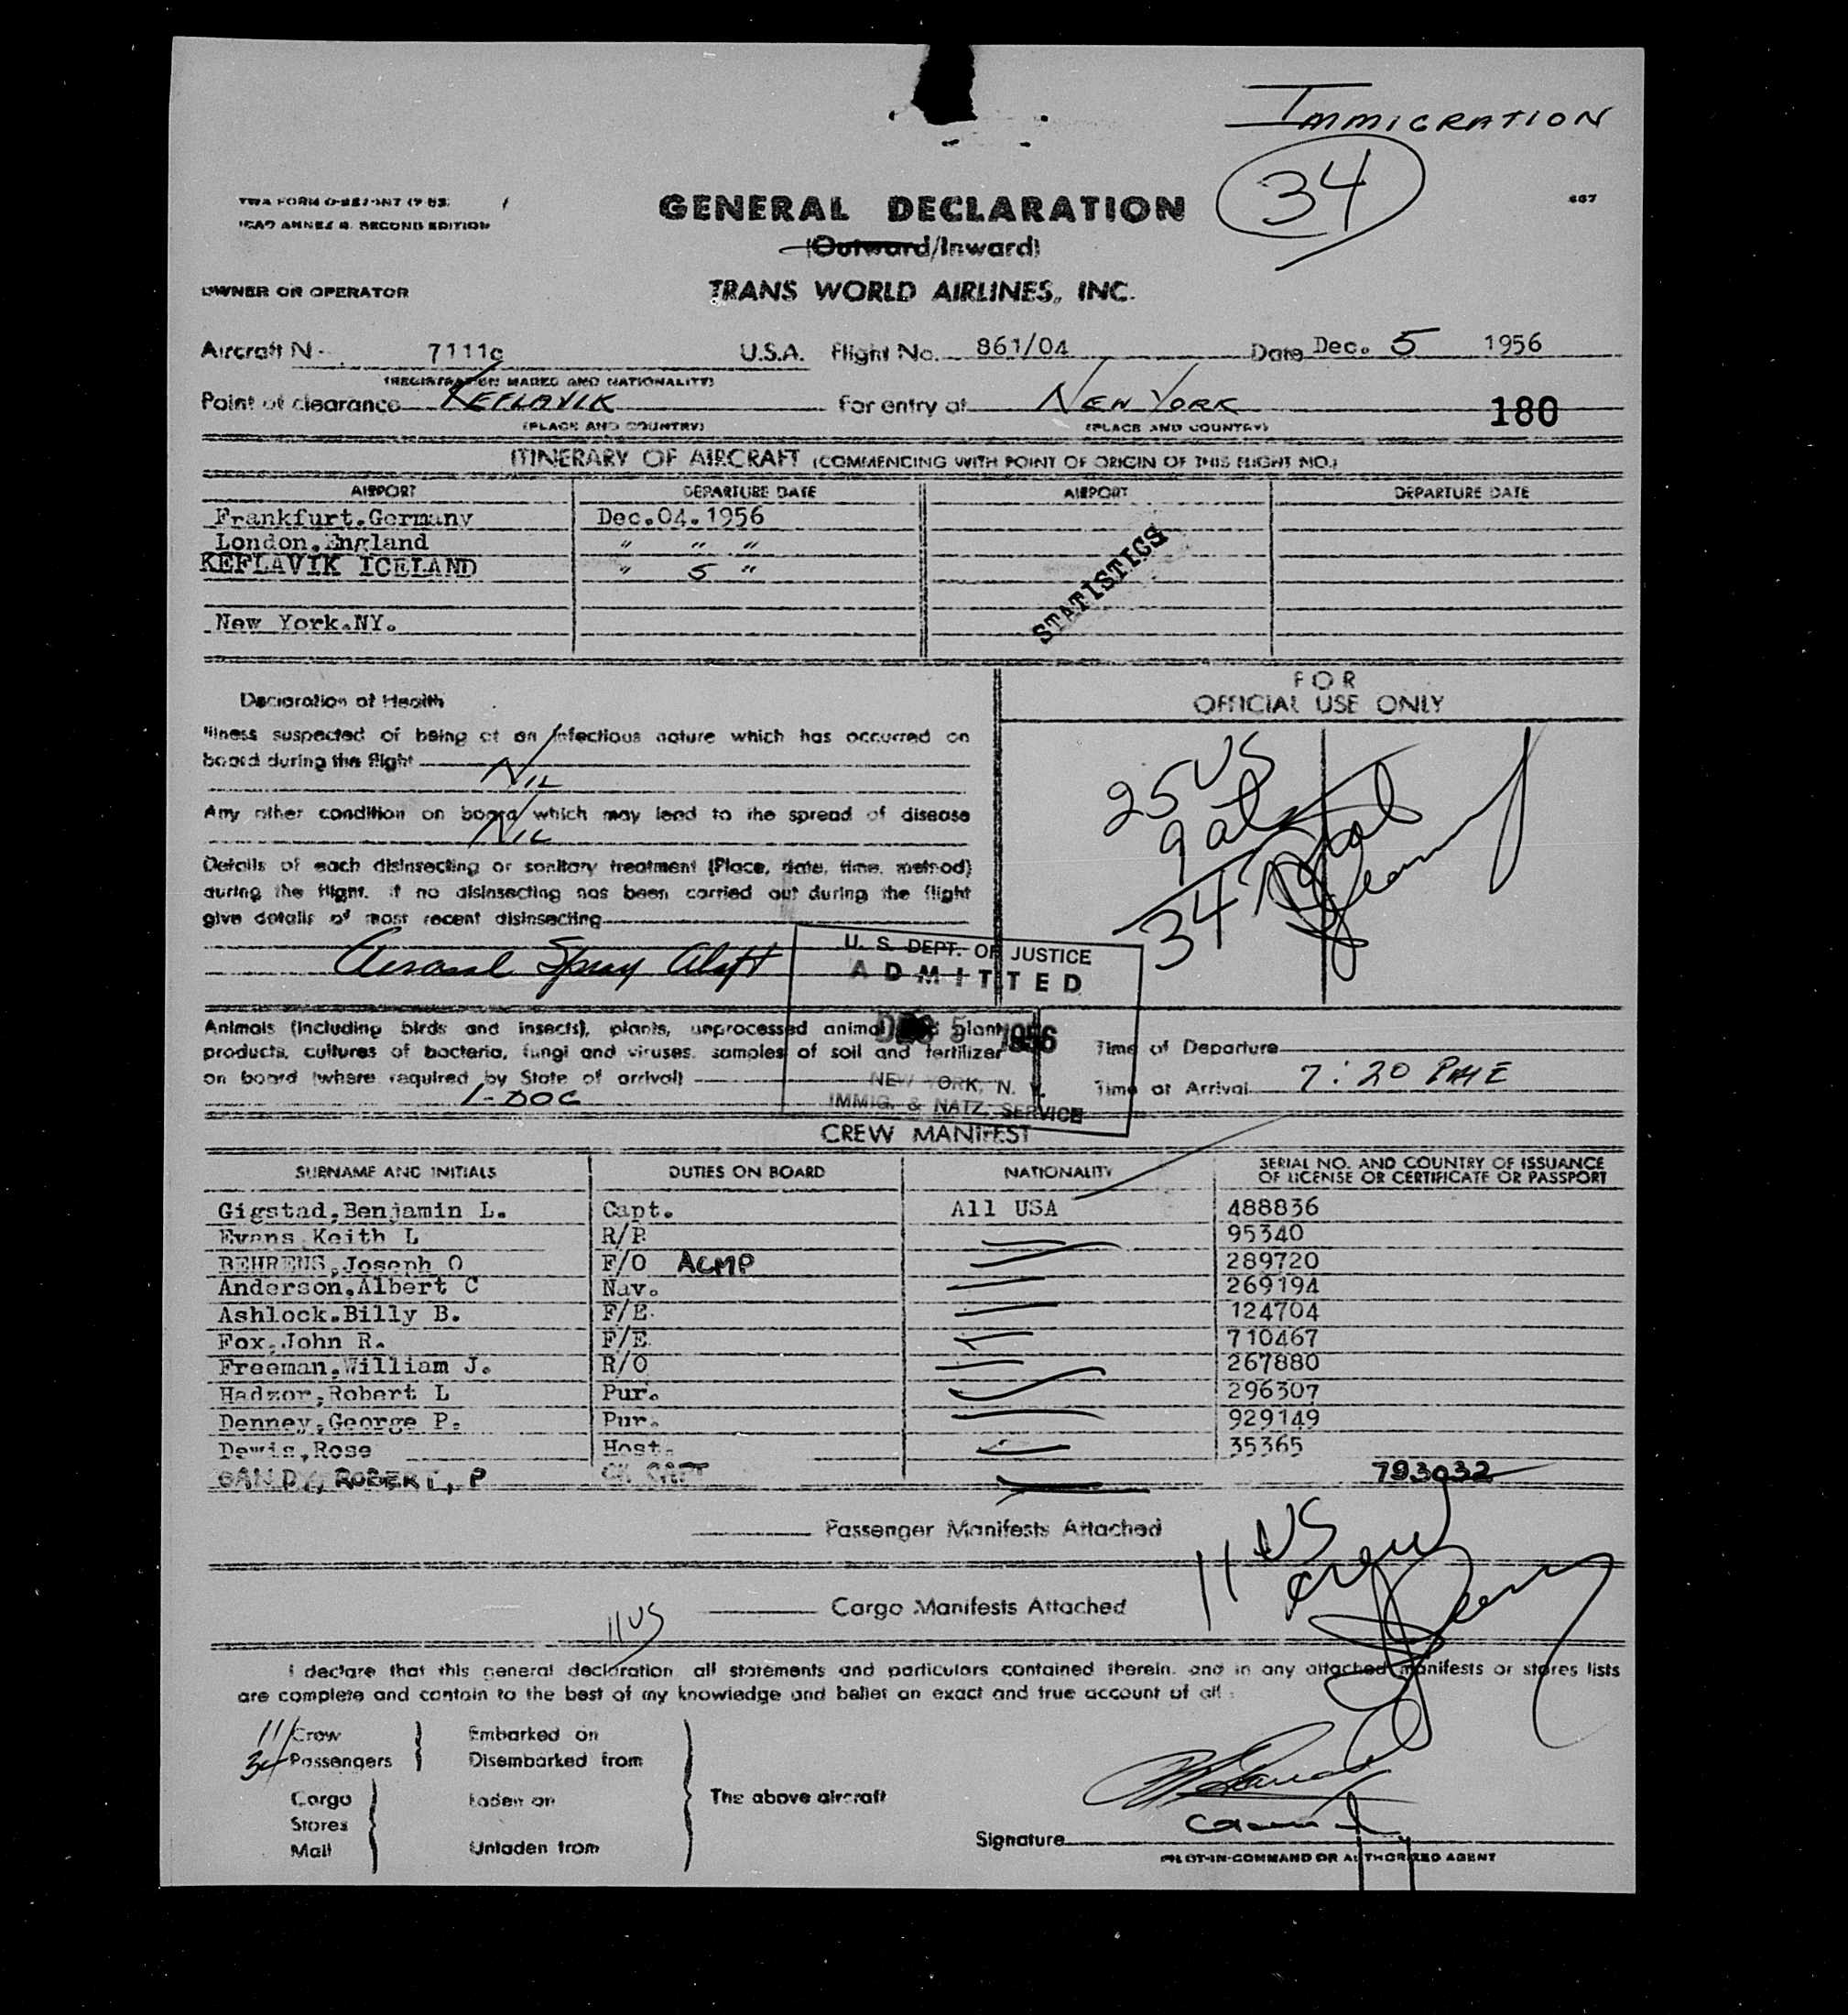 IMMIGRATION
34
TWA FORM
ICAO ANNEX 9. SECOND EDITION
GENERAL DECLARATION
(Outward/Inward)
OWNER OR OPERATOR
TRANS WORLD AIRLINES, INC.
Aircraft N 7111c U.S.A. Flight No. 861/04 Date Dec. 5 1956
(REGISTRATION MARKS AND NATIONALITY)
Point of clearance KEFLAVIK For entry at NEW YORK 180
(PLACE AND COUNTRY) (PLACE AND COUNTRY)
ITINERARY OF AIRCRAFT (COMMENCING WITH POINT OF ORIGIN OF THIS FLIGHT NO.)
AIRPORT DEPARTURE DATE AIRPORT DEPARTURE DATE
Frankfurt.Germany Dec.04.1956
London.England " " "
KEFLAVIK ICELAND " 5 "
STATISTICS
New York.NY.
Declaration of Health
FOR
OFFICIAL USE ONLY
Illness suspected of being of an infectious nature which has occurred on
board during the flight
NIL
Any other condition on board which may lead to the spread of disease
NIL
Details of each disinsecting or sanitary treatment (Place, date, time, method)
during the flight. If no disinsecting has been carried out during the flight
give details of most recent disinsecting
Aerosol Spray Aloft
25 US
9 al
34 Total
U. S. DEPT. OF JUSTICE
ADMITTED
DEC 5 1956
NEW YORK, N. Y.
IMMIG. & NATZ. SERVICE
Animals (including birds and insects), plants, unprocessed animal plant
products, cultures of bacteria, fungi and viruses, samples of soil and fertilizer
on board (where required by State of arrival)
1-DOG
Time of Departure
Time of Arrival 7:20 PME
CREW MANIFEST
SURNAME AND INITIALS DUTIES ON BOARD NATIONALITY SERIAL NO. AND COUNTRY OF ISSUANCE
OF LICENSE OR CERTIFICATE OR PASSPORT
Gigstad,Benjamin L. Capt. All USA 488836
Evans Keith L R/P 95340
BEHRENS,Joseph O F/O ACMP 289720
Anderson,Albert C Nav. 269194
Ashlock.Billy B. F/E 124704
Fox,John R. F/E 710467
Freeman,William J. R/O 267880
Hadzor,Robert L Pur. 296307
Denney,George P. Pur. 929149
Dewis,Rose Host. 35365
GANDY, ROBERT, P CK CAPT 793032
Passenger Manifests Attached
11 US
crew
Cargo Manifests Attached
11 US
I declare that this general declaration all statements and particulars contained therein. and in any attached manifests or stores lists
are complete and contain to the best of my knowledge and belief an exact and true account of all:
11 Crew Embarked on
34 Passengers Disembarked from
Cargo Laden on The above aircraft
Stores
Mail Unladen from
Signature
PILOT-IN-COMMAND OR AUTHORIZED AGENT